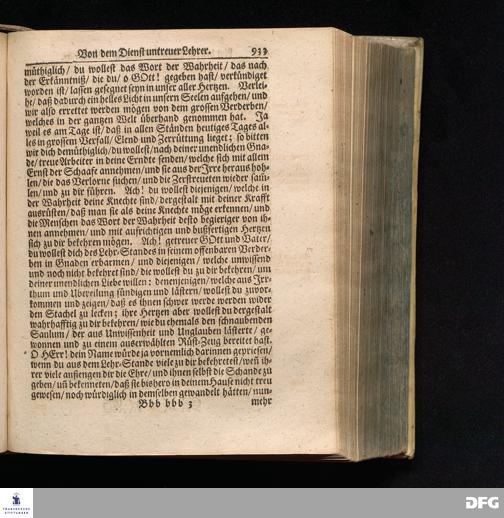 Von dem Dienst untreuer Lehrer. 933
müthiglich/ du wollest das Wort der Wahrheit/ das nach
der Erkänntniß/ die du/ o GOtt! gegeben hast/ verkündiget
worden ist/ lassen gesegnet seyn in unser aller Hertzen. Verlei-
he/ daß dadurch ein helles Licht in unsern Seelen aufgehen/ und
wir also errettet werden mögen von dem grossen Verderben/
welches in der gantzen Welt überhand genommen hat. Ja
weil es am Tage ist/ daß in allen Ständen heutiges Tages al-
les in grossem Verfall/ Elend und Zerrüttung lieget; so bitten
wir dich demüthiglich/ du wollest/ nach deiner unendlichen Gna-
de/ treue Arbeiter in deine Erndte senden/ welche sich mit allem
Ernst der Schaafe annehmen/ und sie aus der Irre heraus hoh-
len/ die das Verlorne suchen/ und die Zerstreueten wieder sam-
len/ und zu dir führen. Ach! du wollest diejenigen/ welche in
der Wahrheit deine Knechte sind/ dergestalt mit deiner Krafft
ausrüsten/ daß man sie als deine Knechte möge erkennen/ und
die Menschen das Wort der Wahrheit desto begieriger von ih-
nen annehmen/ und mit aufrichtigen und bußfertigen Hertzen
sich zu dir bekehren mögen. Ach! getreuer GOtt und Vater/
du wollest dich des Lehr-Standes in seinem offenbaren Verder-
ben in Gnaden erbarmen/ und diejenigen/ welche unwissend
und noch nicht bekehret sind/ die wollest du zu dir bekehren/ um
deiner unendlichen Liebe willen: denenjenigen/ welche aus Irr-
thum und Ubereilung sündigen und lästern/ wollest du zuvor-
kommen und zeigen/ daß es ihnen schwer werde werden wider
den Stachel zu lecken; ihre Hertzen aber wollest du dergestalt
wahrhafftig zu dir bekehren/ wie du ehemals den schnaubenden
Saulum/ der aus Unwissenheit und Unglauben lästerte/ ge-
wonnen und zu einem auserwählten Rüst-Zeug bereitet hast.
O HErr! dein Name würde ja vornemlich darinnen gepriesen/
wenn du aus dem Lehr-Stande viele zu dir bekehretest/ weñ ih-
rer viele anfiengen dir die Ehre/ und ihnen selbst die Schande zu
geben/ uñ bekenneten/ daß sie bishero in deinem Hause nicht treu
gewesen/ noch würdiglich in demselben gewandelt hätten/ nun-
Bbb bbb 3 mehr
FRANCKESCHE
STIFTUNGEN
DFG